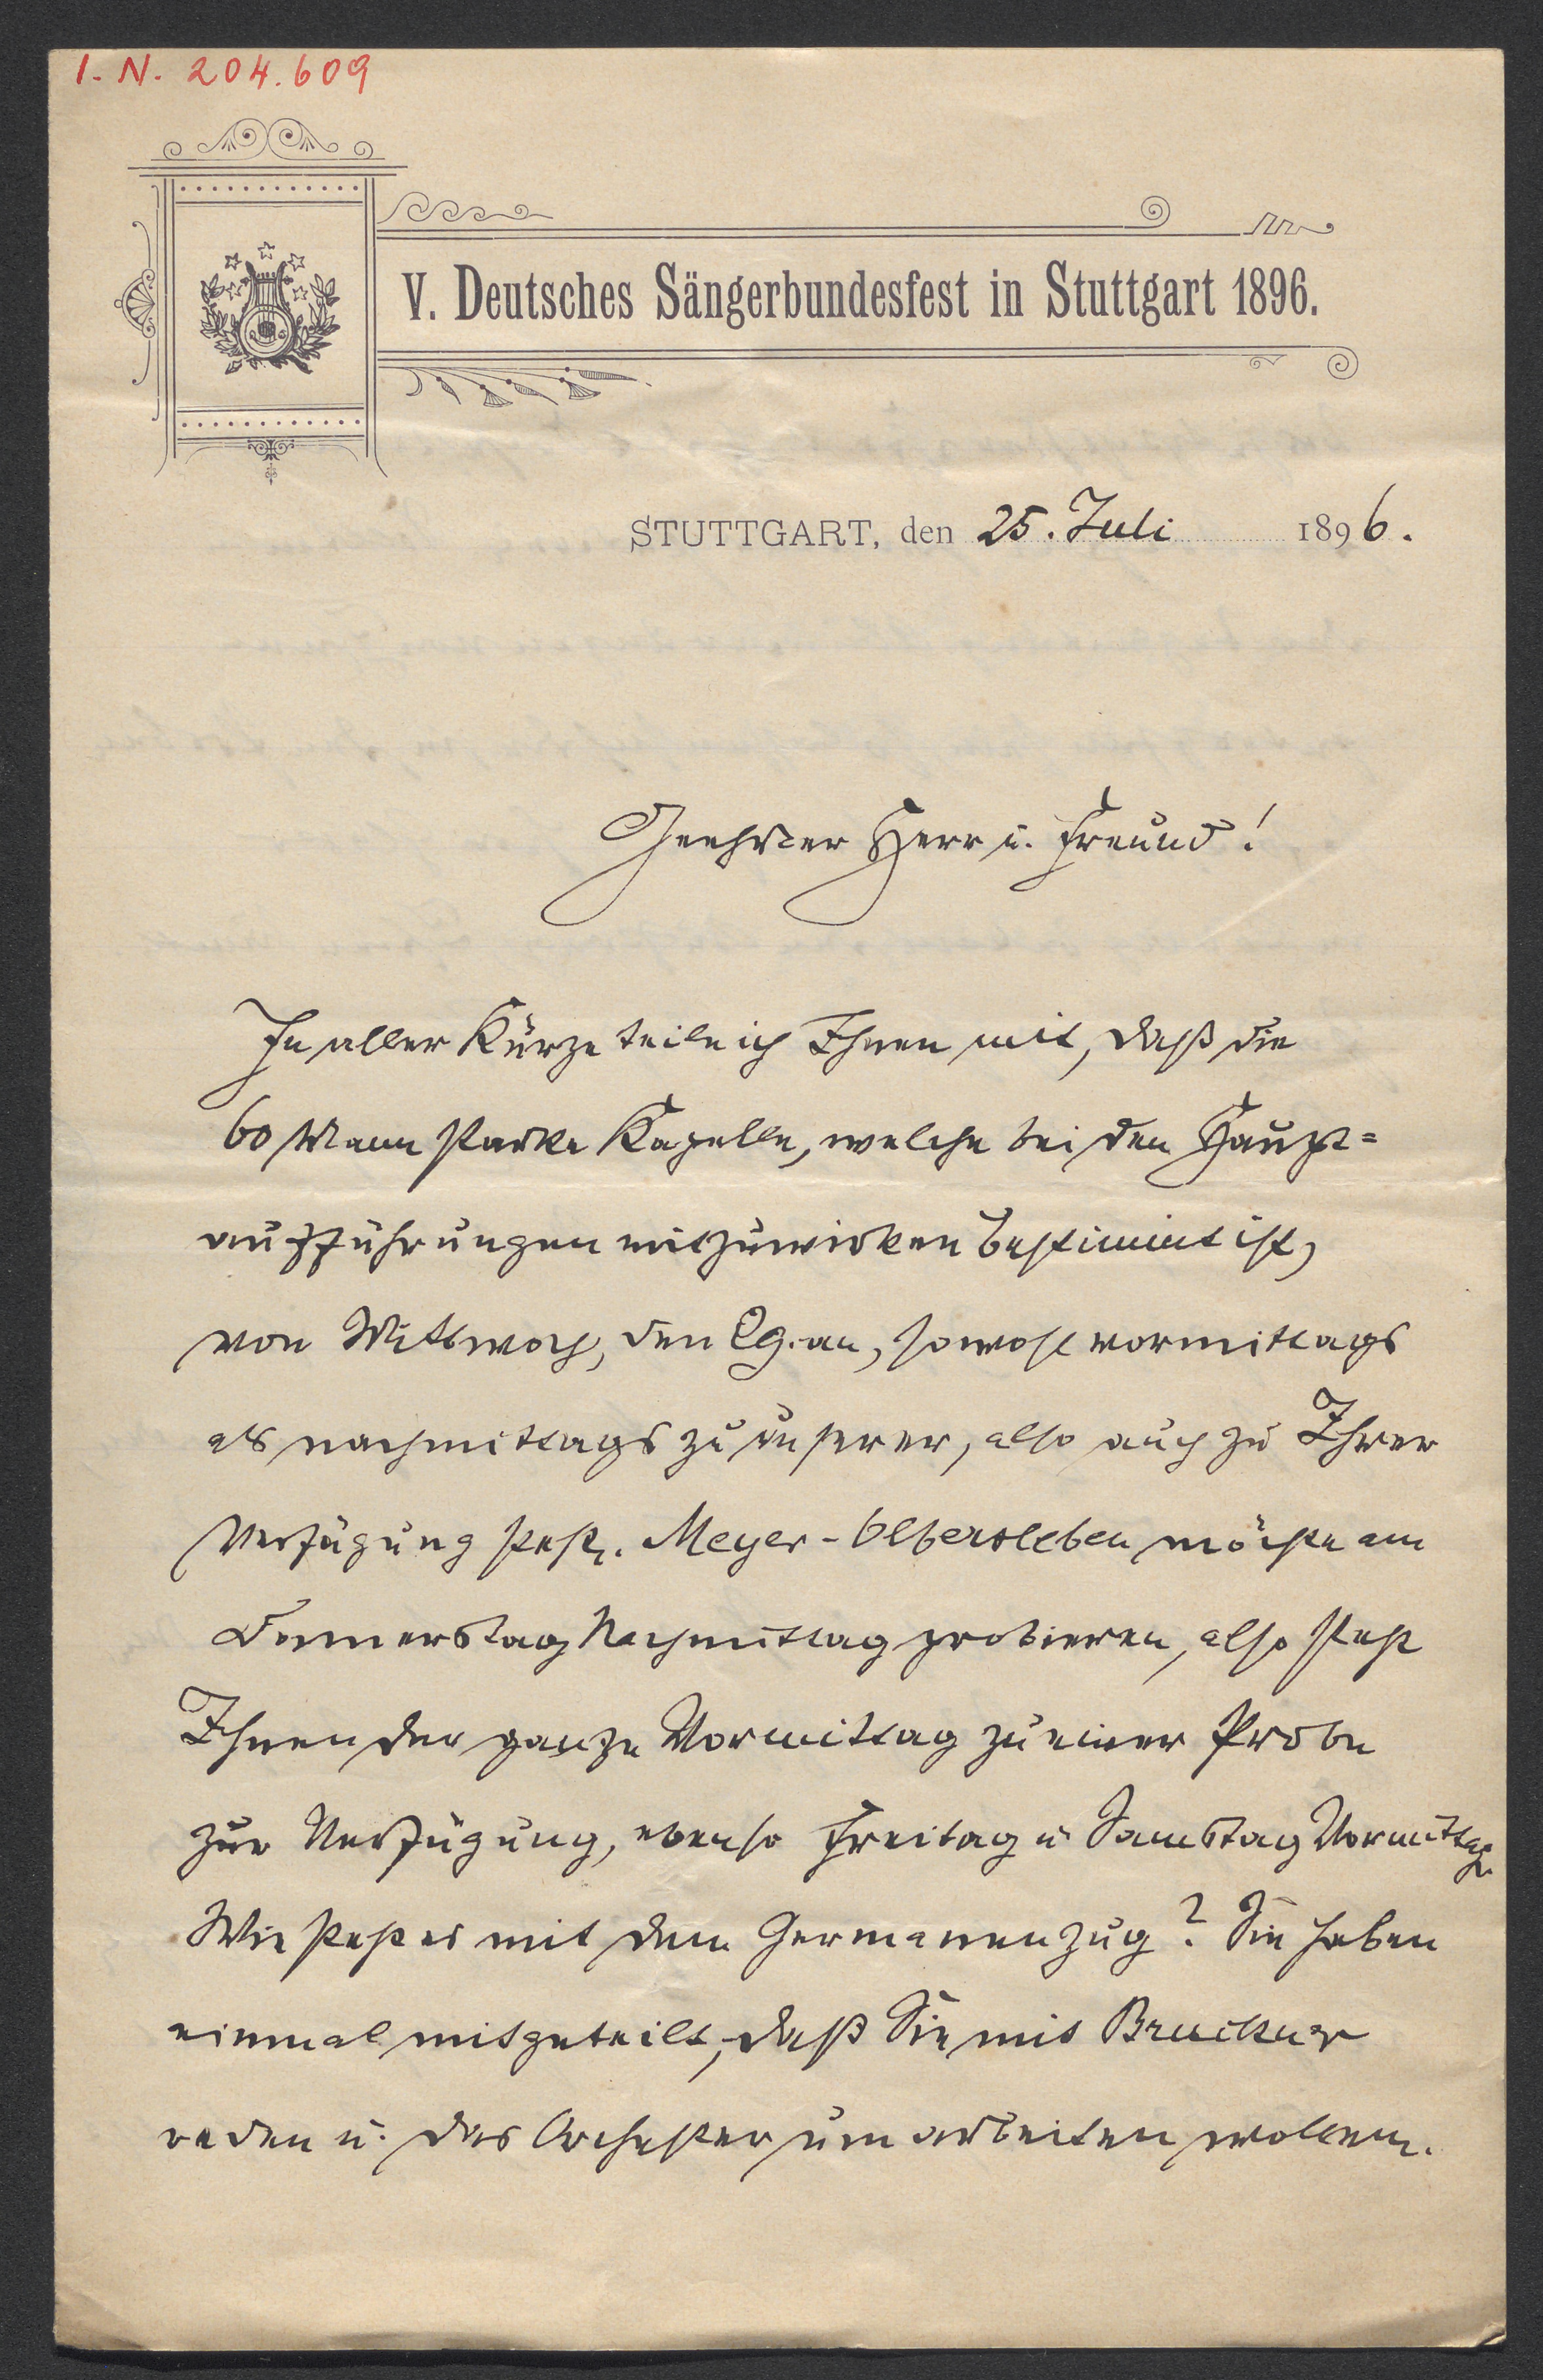 I. N. 204.609
V. Deutsches Sängerbundesfest in Stuttgart 1896.
STUTTGART, den 25. Juli 1896.
Geehrter Herr u. Freund!
In aller Kürze teile ich Ihnen mit, daß die
60 Mann starke Kapelle, welche bei den Haupt=
aufführungen mitzuwirken bestimmt ist,
von Mittwoch, den 29. an, sowohl vormittags
als nachmittags zu unserer, also auch zu Ihrer
Verfügung steht. Meyer-Olbersleben möchte am
Donnerstag Nachmittag probieren, also steht
Ihnen der ganze Vormittag zu einer Probe
zur Verfügung, ebenso Freitag u. Samstag Vormittag.
Wie steht es mit dem Germanenzug? Sie haben
einmal mitgeteilt, daß Sie mit Bruckner
reden u. das Orchester umarbeiten wollen.